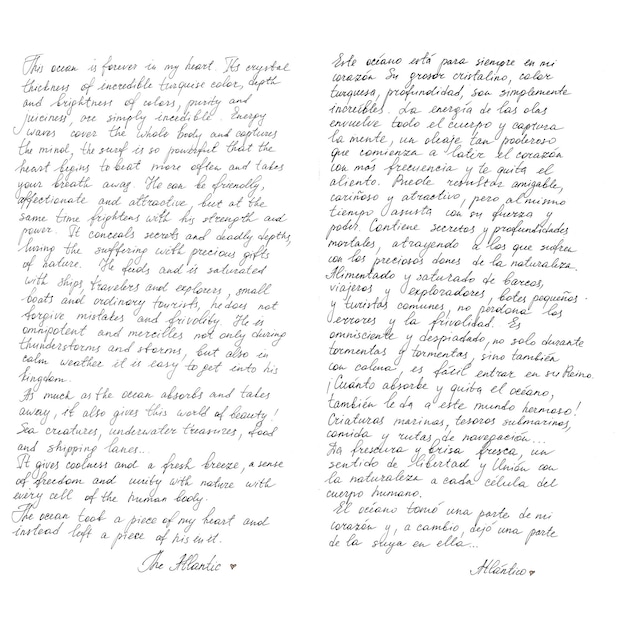 This ocean is forever in my heart. Its crystal
thickness of incredible turquise color, depth
and brightness of colors, purity and
juiciness, are simply incredible. Energy
waves cover the whole body and captures
the mind, the surf is so powerful that the
heart begins to beat more often and takes
your breath away. He can be friendly,
affectionate and attractive, but at the
same time frightens with his strength and
power. It conceals secrets and deadly depths,
luring the suffering with precious gifts
of nature. He feeds and is saturated
with ships, travelers and explorers, small
boats and ordinary tourists, he does not
forgive mistakes and frivolity. He is
omnipotent and mercilles not only during
thunderstorms and storms, but also in
calm weather it is easy to get into his
kingdom.
As much as the ocean absorbs and takes
away, it also gives this world of beauty!
Sea creatures, underwater treasures, food
and shipping lanes...
It gives coolness and a fresh breeze, a sense
of freedom and unity with nature with
every cell of the human body.
The ocean took a piece of my heart and
instead left a piece of his
The Atlantic
Este océano está para siempre en mi
corazón Su grosor cristalino, color
turquesa, profundidad, son simplemente
increíbles. La energía de las olas
envuelve todo el cuerpo y captura
la mente, un oleaje tan poderoso
que comienza a latir el corazón
con más frecuencia y te quita el
aliento. Puede resultar amigable,
cariñoso y atractivo, pero al mismo
tiempo asusta con su fuerza y
poder. Contiene secretos y profundidades
mortales, atrayendo a los que sufren
con los preciosos dones de la naturaleza.
Alimentado y saturado de barcos,
viajeros y exploradores, botes pequeños
y turistas comunes, no perdona los
errores y la frivolidad. Es
omnisciente y despiadado, no solo durante
tormentas y tormentas, sino también
con calma, es fácil entrar en su Reino.
¡Cuánto absorbe y quita el océano,
también le da a este mundo hermoso!
Criaturas marinas, tesoros submarinos,
comida y rutas de navegación...
Da frescura y brisa fresca, un
sentido de libertad y Unión con
la naturaleza a cada célula del
cuerpo humano.
El océano tomó una parte de mi
corazón y, a cambio, dejó una parte
de la suya en ella...
Atlántico